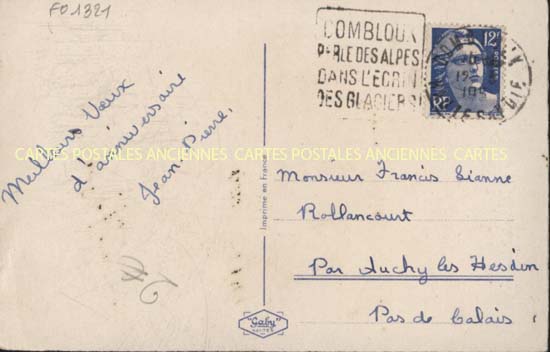 FO1321
COMBLOUX
PERLE DES ALPES
DANS L'ECRIN
DES GLACIERS
12F
RF
Meilleurs Vœux
d'anniversaire
Jean-Pierre.
CARTES POSTALES ANCIENNES CARTES POSTALES ANCIENNES CARTES
Imprimé en France
Monsieur Francis Sianne
Rollancourt
Par Auchy les Hesdin
Pas de Calais
"Gaby"